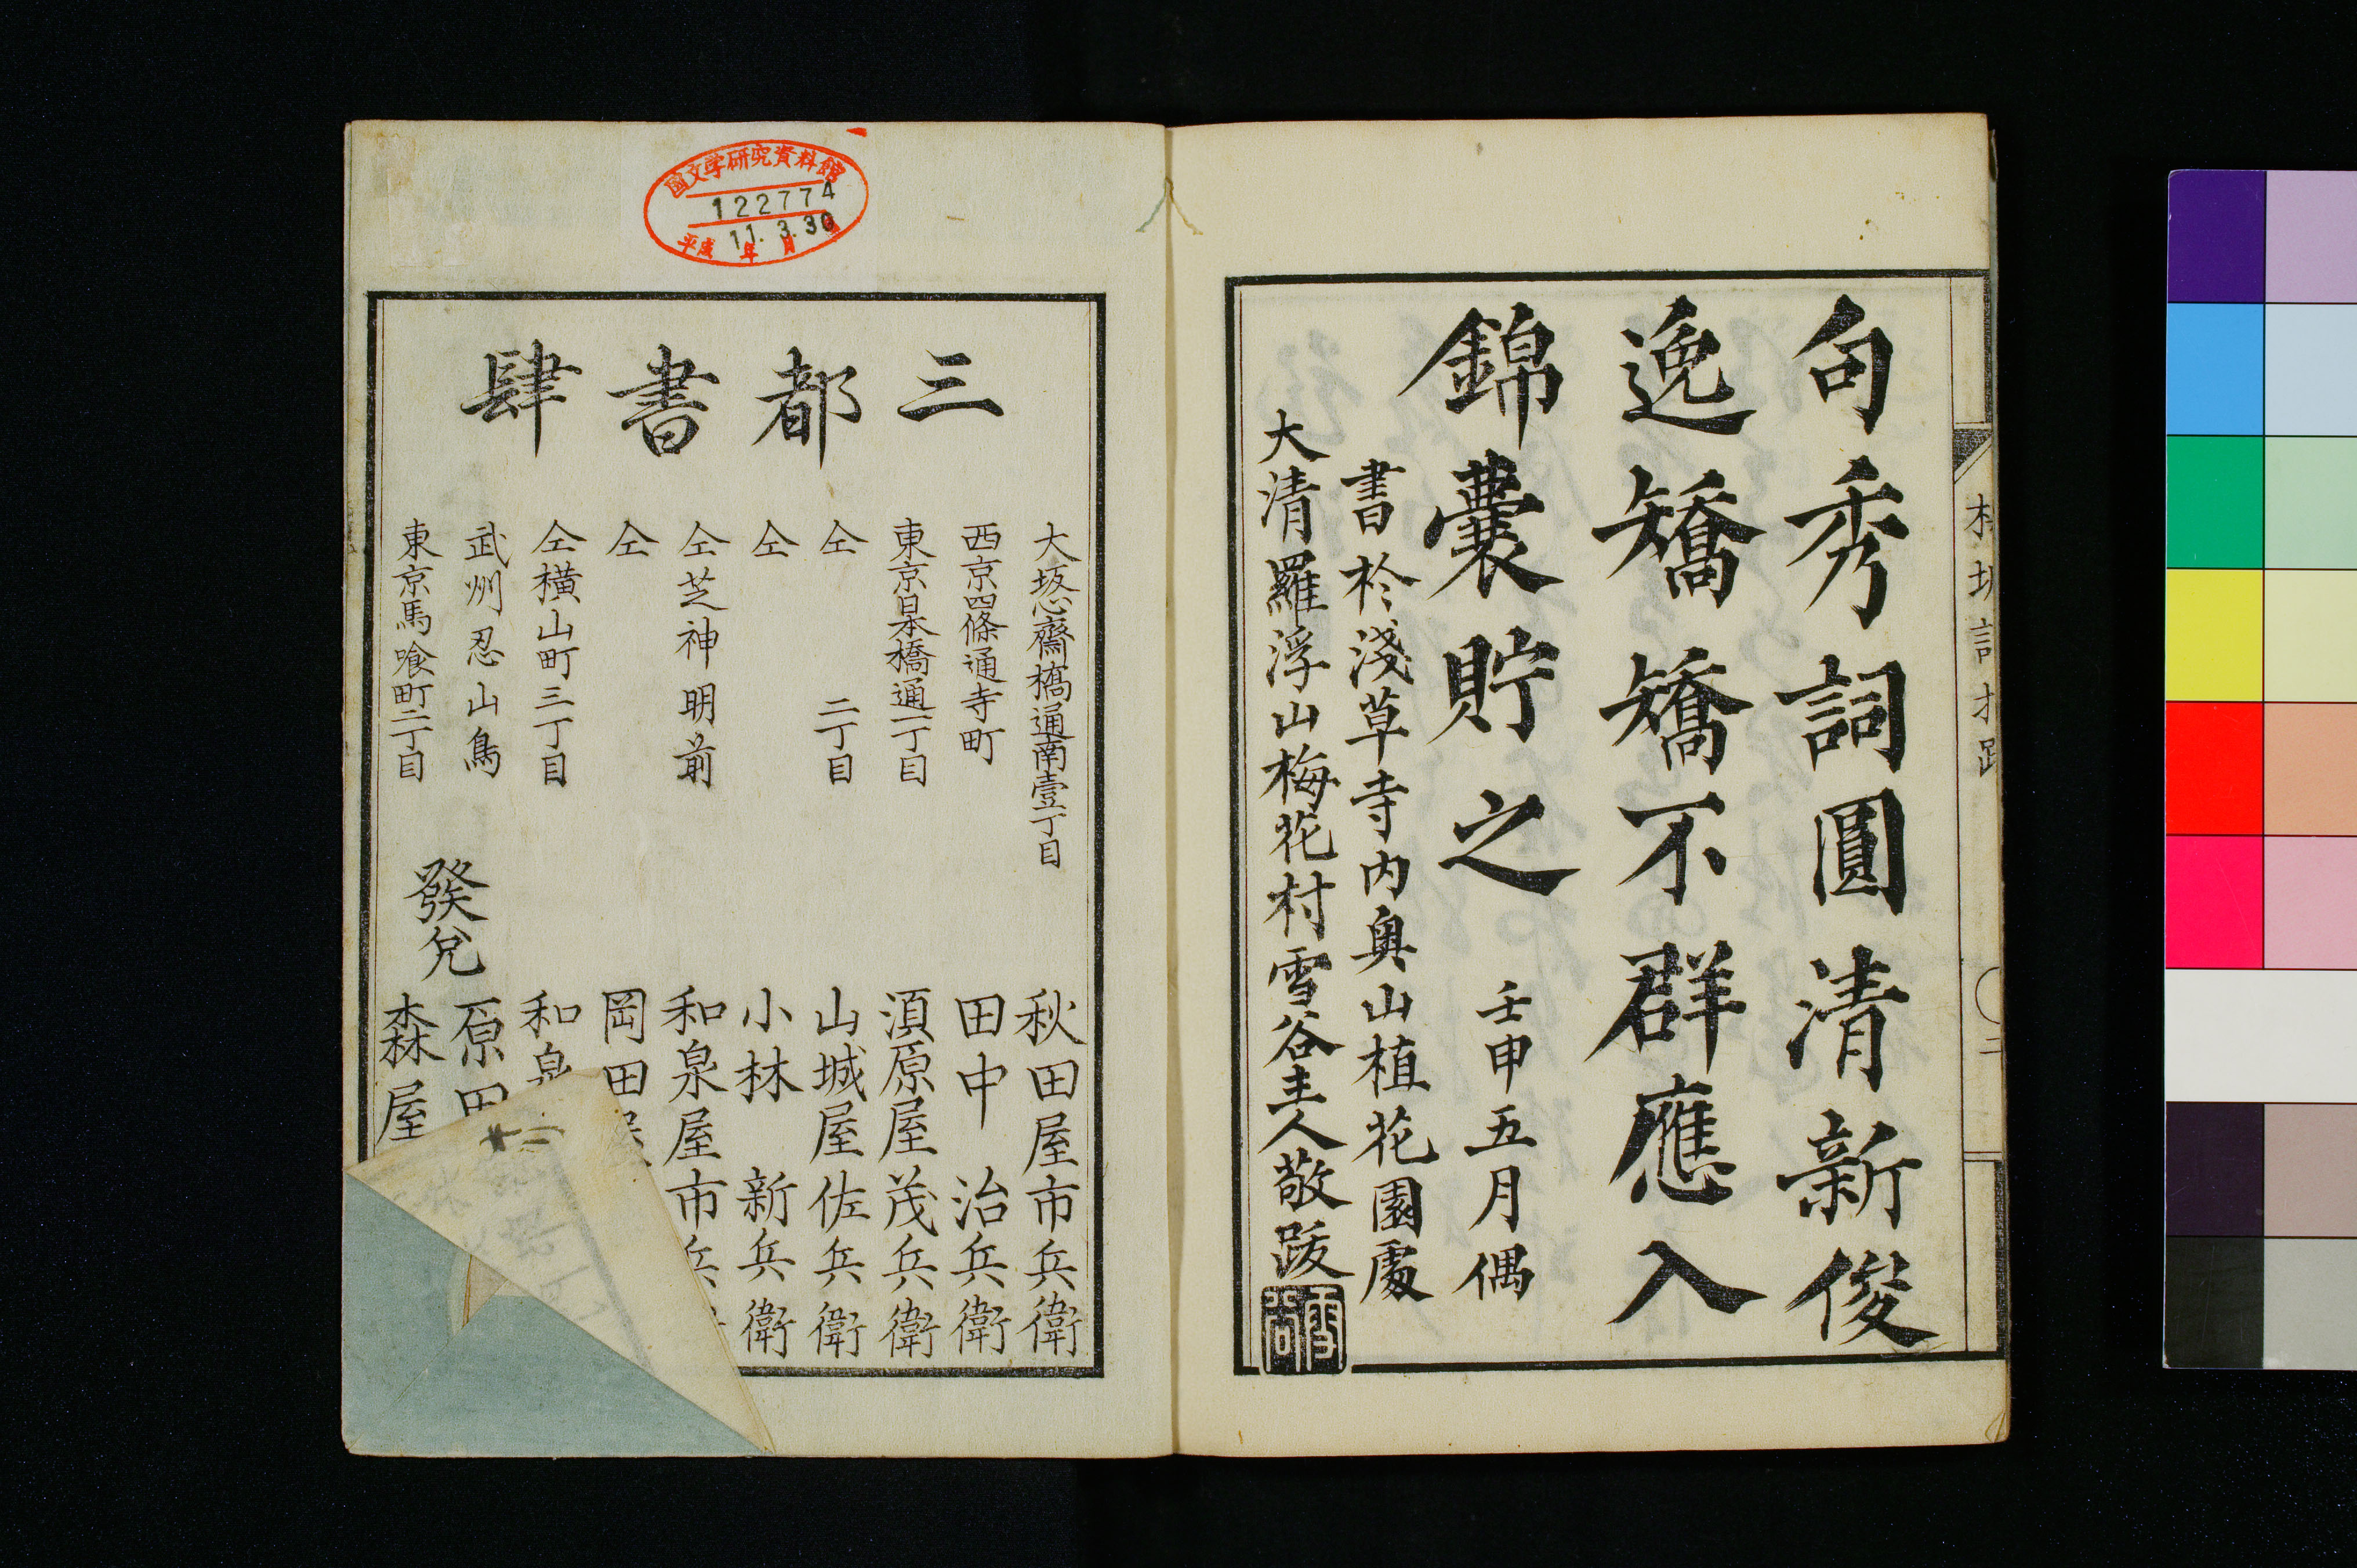 句秀詞圓清新俊
逸矯矯不群應入
錦囊貯之
壬申五月偶
書於淺草寺内奥山植花園處
大清羅浮山梅花村雪谷主人敬跋
雪谷
二
国文学研究資料館
122774
平成11年3月30日
三都書肆
大坂心齋橋通南壹丁目
秋田屋市兵衛
西京四條通寺町
田中治兵衛
東京日本橋通一丁目
須原屋茂兵衛
仝 二丁目
山城屋佐兵衛
仝
小林新兵衛
仝芝神明前
和泉屋市兵
仝
岡田屋
仝橫山町三丁目
和泉
武州忍山鳥
原田
東京馬喰町二丁目
發兌
森屋